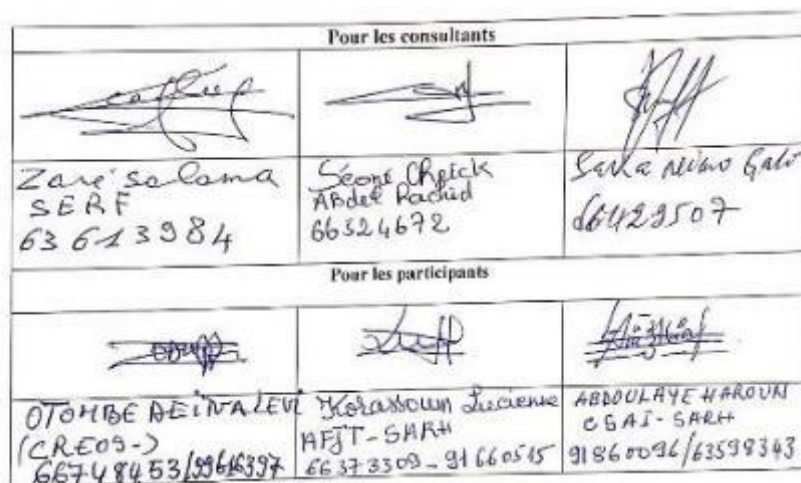 Pour les consultants
Zaré Salama
SERF
63613984
Seone Cheick
Abdel Rachid
66324672
Sarka Galo
66429507
Pour les participants
OTOMBE LEVI
(CREOS-)
66748453/99616397
Korassoun Lucienne
AFJT-SARH
66373309-91660515
ABDOULAYE HAROUN
CSAI-SARH
91860096/63598343